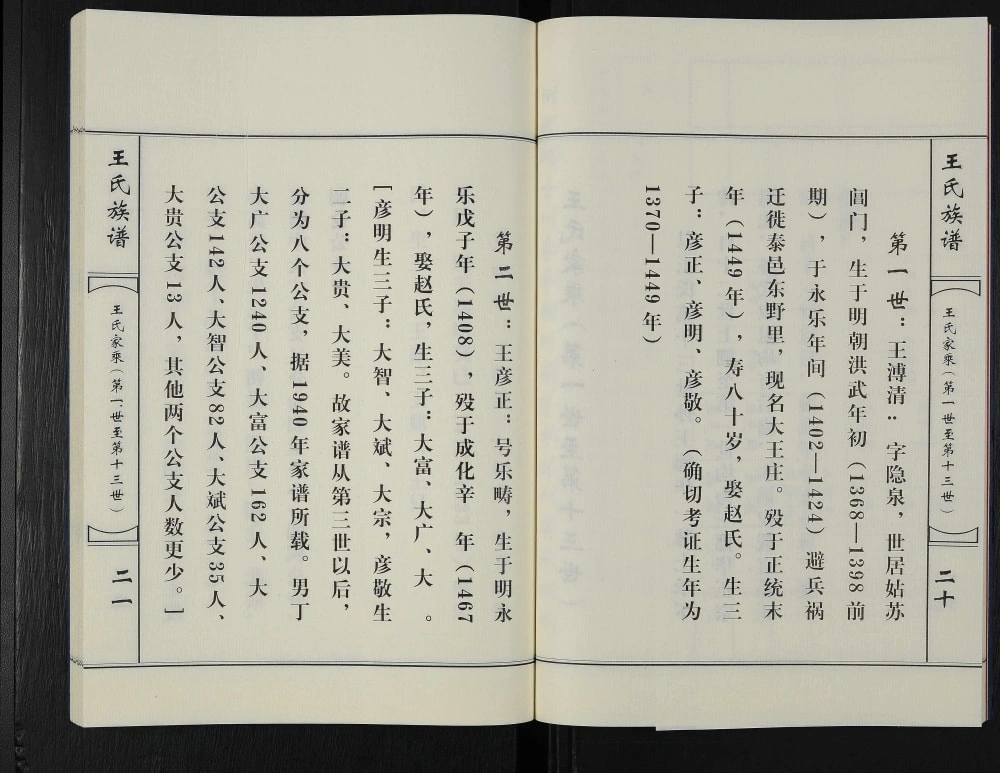 王氏族谱
王氏家乘（第一世至第十三世）
二十
第一世：王溥清：字隐泉，世居姑苏
闾门，生于明朝洪武年初（1368—1398前
期），于永乐年间（1402—1424）避兵祸
迁徙泰邑东野里，现名大王庄。殁于正统末
年（1449年），寿八十岁，娶赵氏。生三
子：彦正、彦明、彦敬。（确切考证生年为
1370—1449年）
第二世：王彦正：号乐畴，生于明永
乐戊子年（1408），殁于成化辛 年（1467
年），娶赵氏，生三子：大富、大广、大 。
［彦明生三子：大智、大斌、大宗，彦敬生
二子：大贵、大美。故家谱从第三世以后，
分为八个公支，据1940年家谱所载。男丁
大广公支1240人、大富公支162人、大
公支142人、大智公支82人、大斌公支35人、
大贵公支13人，其他两个公支人数更少。］
王氏族谱
王氏家乘（第一世至第十三世）
二一